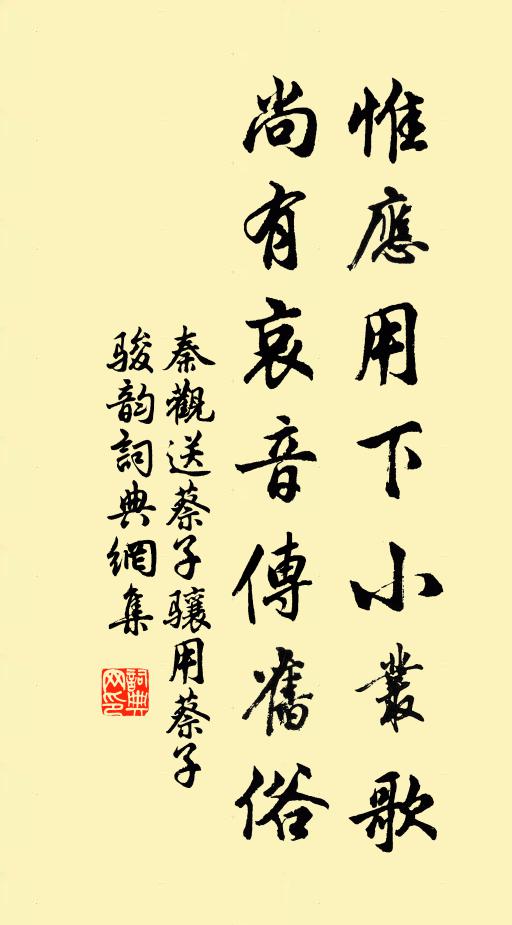 惟應用下小叢歌
尚有哀音傳舊俗
秦觀送蔡子驤用蔡子
駿韵詞典網集
詞典
网印